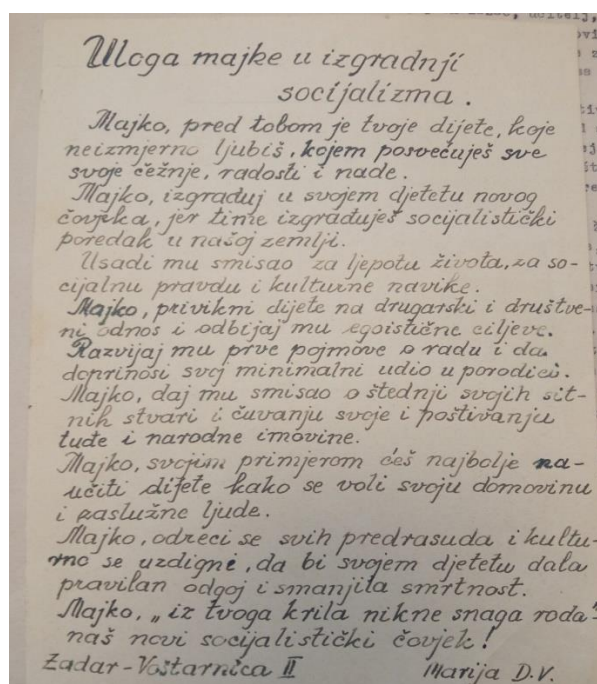 Uloga majke u izgradnji
socijalizma.
Majko, pred tobom je tvoje dijete, koje
neizmjerno ljubiš, kojem posvećuješ sve
svoje čežnje, radosti i nade.
Majko, izgrađuj u svojem djetetu novog
čovjeka, jer time izgrađuješ socijalistički
poredak u našoj zemlji.
Usadi mu smisao za ljepotu života, za so-
cijalnu pravdu i kulturne navike.
Majko, privikni dijete na drugarski i društve-
ni odnos i odbijaj mu egoistične ciljeve.
Razvijaj mu prve pojmove o radu i da
doprinosi svoj minimalni udio u porodici.
Majko, daj mu smisao o štednji svojih sit-
nih stvari i čuvanju svoje i poštivanju
tuđe i narodne imovine.
Majko, svojim primjerom ćeš najbolje na-
učiti dijete kako se voli svoju domovinu
i zaslužne ljude.
Majko, odreci se svih predrasuda i kultu-
rno se uzdigni, da bi svojem djetetu dala
pravilan odgoj i smanjila smrtnost.
Majko, „iz tvoga krila nikne snaga roda"
naš novi socijalistički čovjek!
Zadar-Voštarnica II Marija D.V.